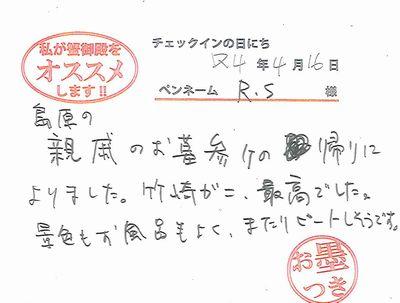 私が蟹御殿を
オススメ
します!!
チェックインの日にち
R4年4月16日
ペンネーム R.S 様
島原の
親戚のお墓参りの帰りに
よりました。竹崎がに、最高でした。
景色もお風呂もよく、またリピートしそうです。
お墨
つき